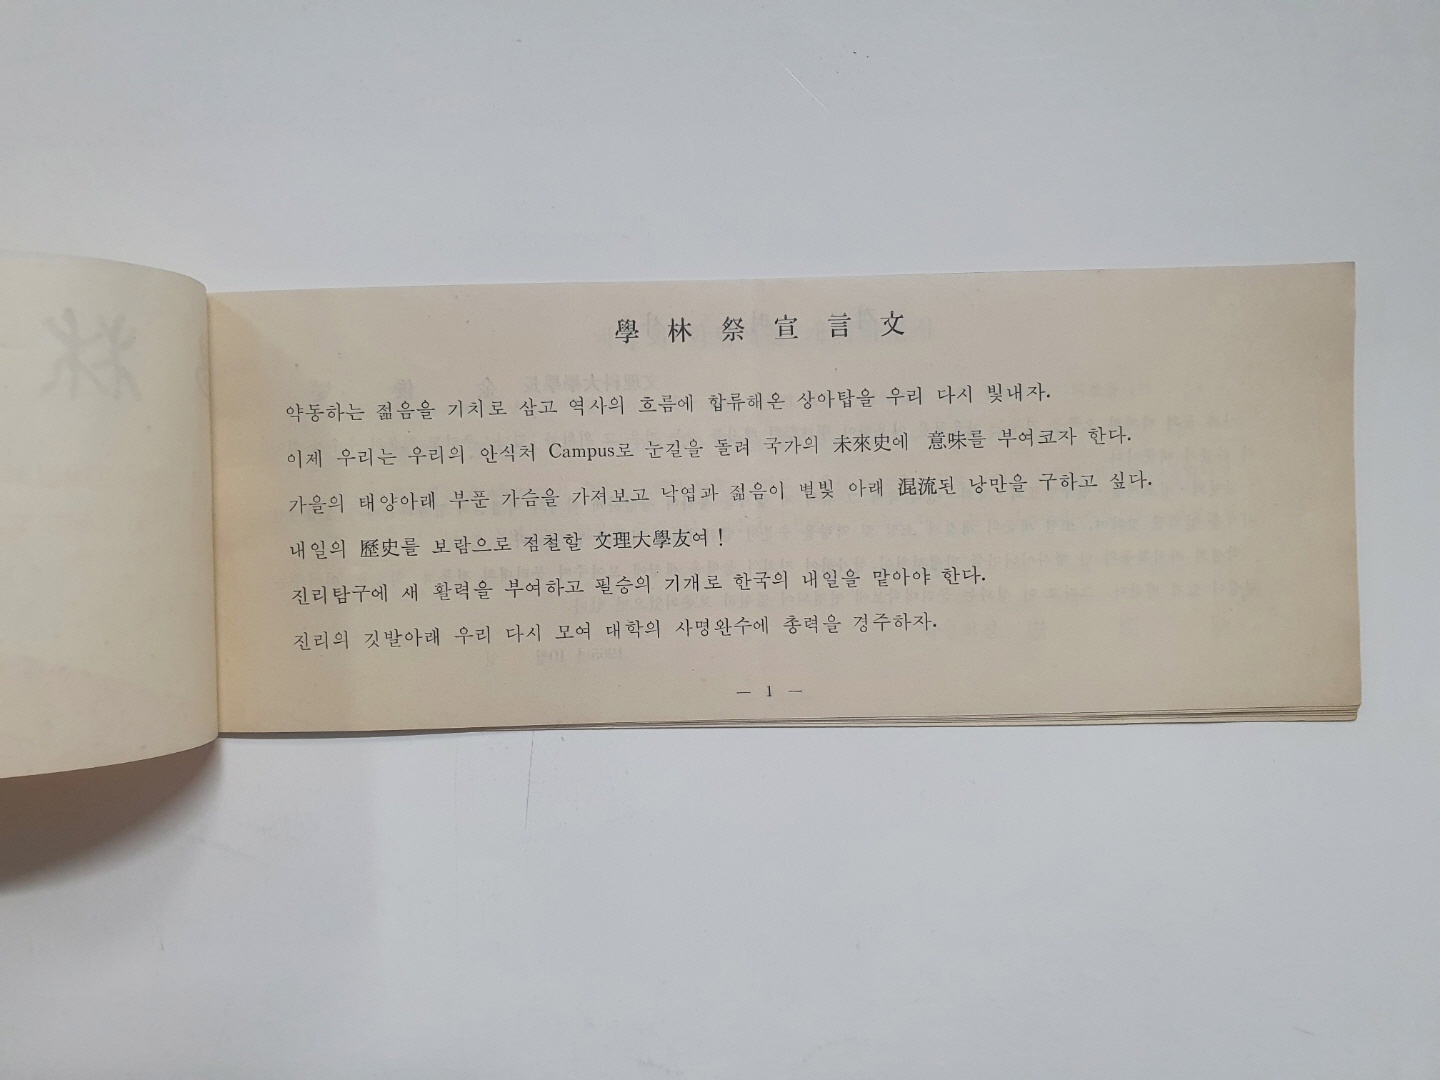 學林祭宣言文
약동하는 젊음을 기치로 삼고 역사의 흐름에 합류해온 상아탑을 우리 다시 빛내자.
이제 우리는 우리의 안식처 Campus로 눈길을 돌려 국가의 未來史에 意味를 부여코자 한다.
가을의 태양아래 부푼 가슴을 가져보고 낙엽과 젊음이 별빛 아래 混流된 낭만을 구하고 싶다.
내일의 歷史를 보람으로 점철할 文理大學友여!
진리탐구에 새 활력을 부여하고 필승의 기개로 한국의 내일을 맡아야 한다.
진리의 깃발아래 우리 다시 모여 대학의 사명완수에 총력을 경주하자.
— 1 —
林